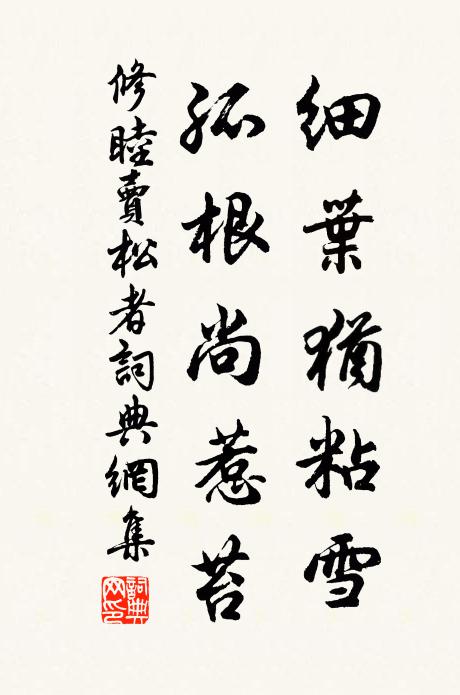 細葉猶粘雪
孤根尚惹苔
修睦賣松者詞典網集
詞典
网印